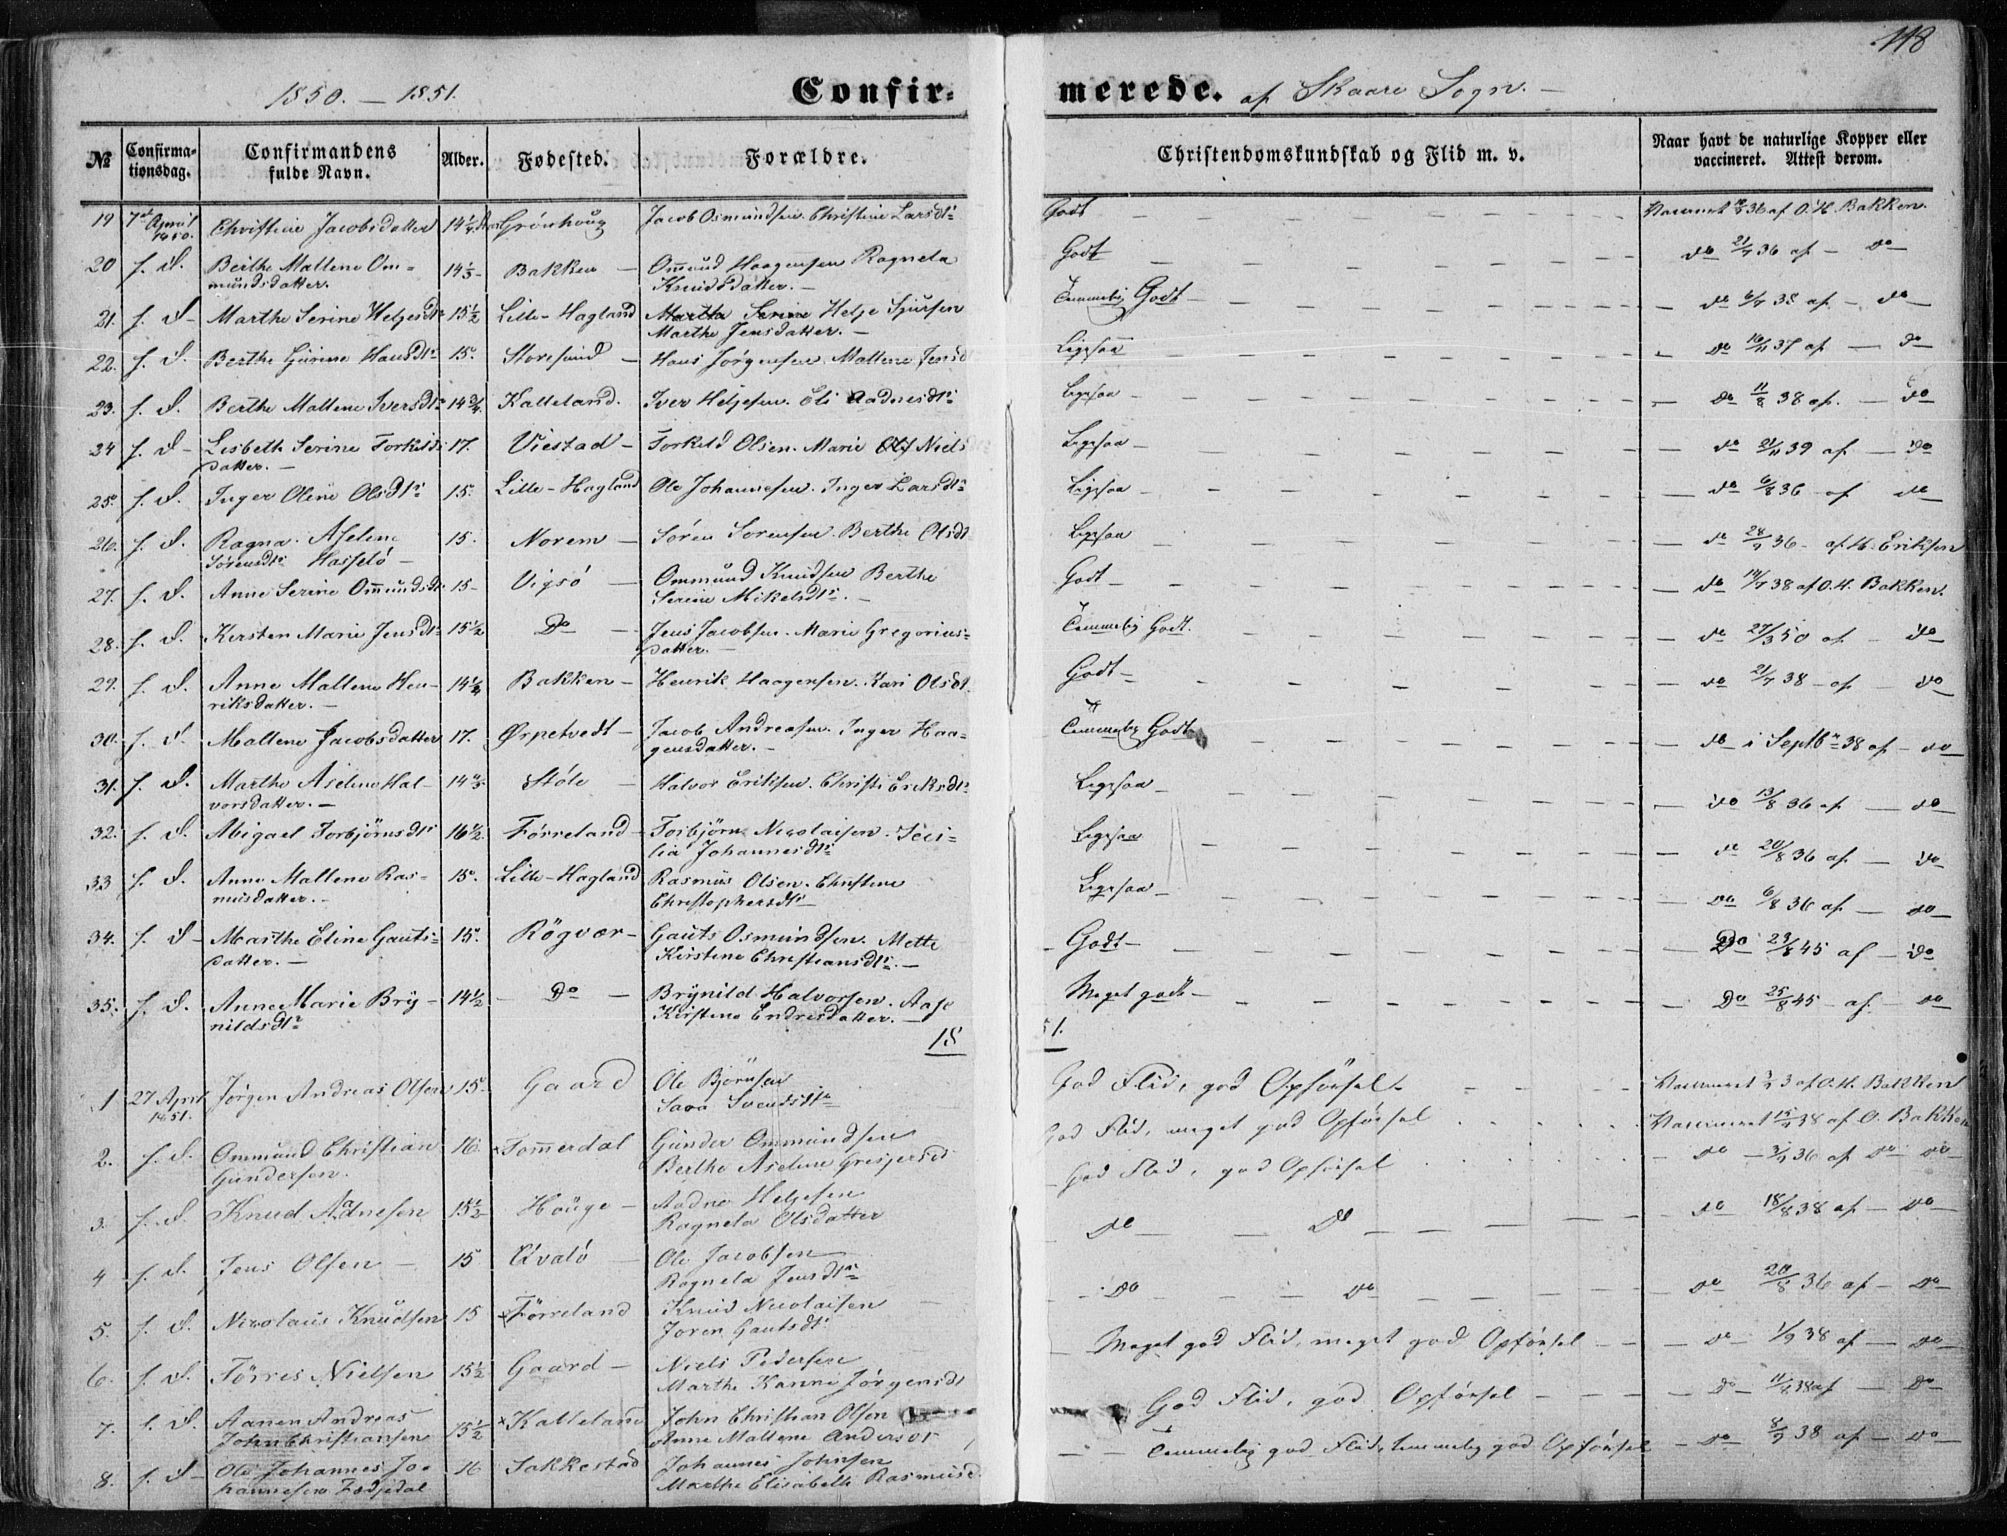 118
1850. — 1851.
Confir-
merede. af Skaare Sogn. —
№
Confirma-
tionsdag.
Confirmandens
fulde Navn.
Alder.
Fødested.
Forældre.
Christendomskundskab og Flid m. v.
Naar havt de naturlige Kopper eller
vaccineret. Attest derom.
19 7de April 1850. Christine Jacobsdatter 14 1/4 Grönhoug Jacob Osmundsen. Christine Larsdtr Godt 36 af O. H. Bakken.
20 f. d. Berthe Mallene Om-
mundsdatter. 14 1/3 Bakken — Ommund Haagensen Ragnela
Knudsdatter. — Godt do 21/7 36 af — do
21. f. d. Marthe Serine Heljesdtr 15 1/2 Lille-Hagland Helje Sjursen
Marthe Jensdatter. — Temmelig Godt — do 6/7 38 af — do
22. f. d. Berthe Gurine Hansdtr 15. Storesund — Hans Jörgensen. Mallene Jensd Ligesaa do 37 af — do
23. f. d. Berthe Mallene Iversdtr 14 3/4 Kalleland. Iver Heljesen. Eli Aadnesdtr Ligesaa — do 11/8 38 af. — do
24 f. d. Lisbeth Serine Torkilds-
datter. — 17. Viestad — Torkild Olsen. Marie Niels Ligesaa — do 39 af — do
25. f. d. Inger Oline Olsdtr 15. Lille-Hagland Ole Johannesen. Inger Larsdtr Ligesaa — do 6/8 36 — af do
26. f. d. Ragna Aselene
Sörensdtr Hasselö — 15. Norem — Sören Sörensen. Berthe Olsdt Ligesaa — do 28/7 36 — af H. Eriksen
27. f. d. Anne Serine Ommundsdt 15 — Vigsö — Ommund Knudsen Berthe
Serine Mikelsdtr. — Godt — do 14/7 38 af O. H. Bakken.
28. f. d. Kersten Marie Jensdtr 15 1/2 Do — Jens Jacobsen. Marie Gregorius-
datter. — Temmelig Godt. — do 27/3 50 af — do
29. f. d. Anne Mallene Hen-
riksdatter. — 14 1/4 Bakken — Henrik Haagensen. Kari Olsdt. Godt — do 21/7 38 — af — do
30. f. d. Mallene Jacobsdatter 17. Ørpetvedt — Jacob Andreasen. Inger Haa-
gensdatter. — Temmelig Godt — do i Septbr 38 af — do
31. f. d. Marthe Aseline Hal-
vorsdatter. — 14 Stöle — Halvor Eriksen. Christi Eriksdtr Ligesaa — do 13/8 36 af — do
32. f. d. Abigael Torbjörnsdtr 16 1/2 Förreland — Torbjörn Nicolaisen. Seci-
lia Johannesdtr Ligesaa — do 20/8 36 af — do
33 f. d. Anne Mallene Ras-
musdatter. — 15. Lille-Hagland Rasmus Olsen. Christine
Christophersdtr — Ligesaa — do 6/8 36 af — do
34. f. d. Marthe Eline Gauts-
datter. — 15. Rögvær — Gauts Osmundsen. Mette
Kirstine Christiansdtr. — Godt — Do 23/8 45 af — do
35. f. d. Anne Marie Bry-
nildsdtr 14 1/2 — Do — Brynild Halvorsen. Aase
Kirstine Endresdatter. — Meget godt — Do 25/8 45 — af. — do
18 51.
1 27 April 1851. Jörgen Andreas Olsen 15. Gaard Ole Björnsen
Sara Svendsdtr God Flid, god Opförsel. af O. H. Bakken
2. f. d. Ommund Christian
Gundersen. 16. Tommerdal Gunder Ommundsen
Berthe Aseline God Flid, meget god Opförsel Vaccineret 38 af O. Bakken
3. f. d. Knud Adnesen 15 1/2 Houge — Aadne Heljesen
Ragnela Olsdatter God Flid, god Opförsel do 36 af do do
4 f. d. Jens Olsen — 15 Qvalö — Ole Jacobsen
Ragnela Jensdtr do do do 18/8 38 af — do
5. f. d. Nicolaus Knudsen 15 Förreland Knud Nicolaisen
Joren Gautsdtr do do do 20/8 36 af — do
6. f. d. Törres Nielsen 15 1/2 Gaard — Niels Pedersen
Marthe Karine Jörgensdt Meget god Flid, meget god Opförsel — do 1/9 38 af — do
7. f. d. Aanen Andreas
John Christiansen 15 1/2 Kalleland John Christian Olsen
Anne Mallene God Flid, god Opförsel — do 38 af — do
8. f. d. Ole Johannes Jo-
hannesen 16 Sakkestad Johannes Johnsen
Marthe Elisabeth Rasmusd. Temmelig god Flid, temmelig god Opförsel — do 38 af — do